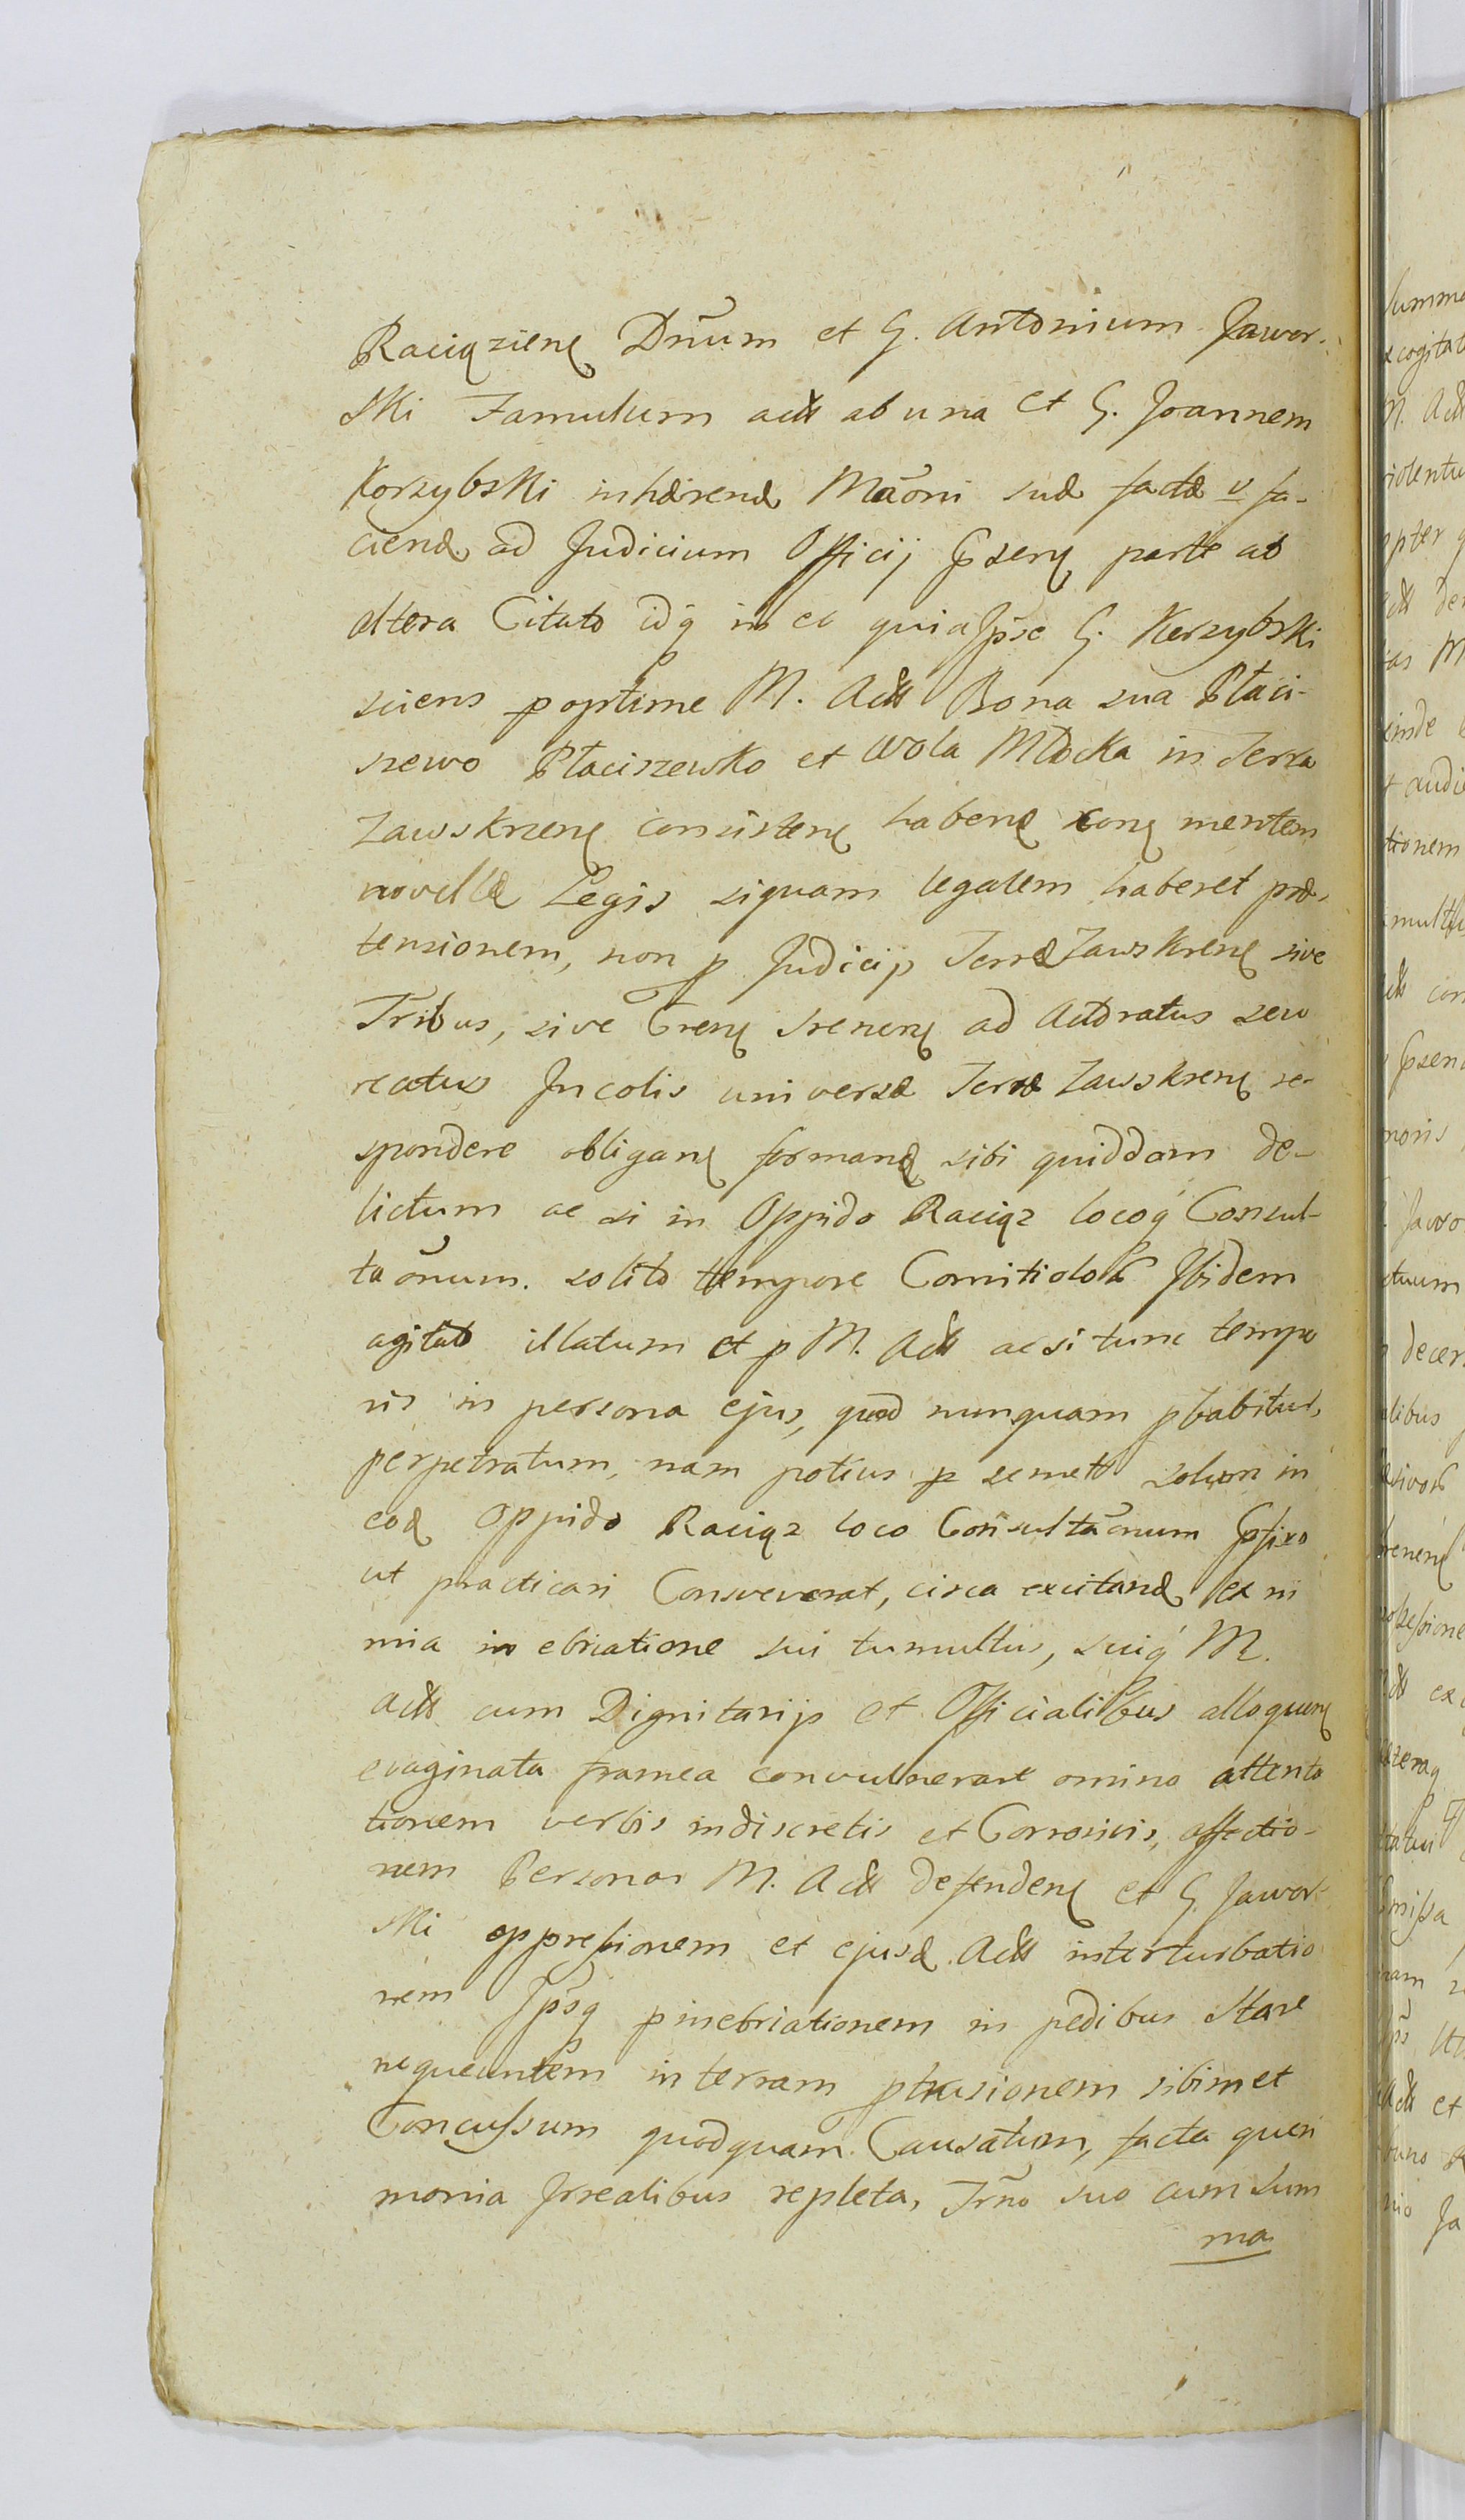 Raciązień Dnūm et G. Antonium Jawor-
ski Famulum actt ab una et G. Joannem
Korzybski inhærend Māoni suæ factæ v fa-
ciend ad Judicium Officij pserń parte ab
altera Citato idq in eo quia Jpse G. Korzybski
sciens poptime M. Actt Bona sua Płaci-
szewo Płaciszewko et Wola Młocka in Terra
Zawskrzeń consisteń habeń coń mentem
novellæ Legis siquam legalem haberet præ-
tensionem, non p Judicijs Terræ Zawskreń sive
Tribus, sive Creń Sreneń ad Actoratus seu
reatus Jncolis universæ Terræ Zawskreń re-
spondere obligań formand sibi quiddam de-
lictum ac si in Oppido Raciąz locoq Consul-
taōnum solito tempore Comitiolor Jbidem
agitato illatum et p M. Actt ac si tunc tempo
ris in persona ejus, quod nunquam pbabitur,
perpetratum, nam potius p semet solum in
eod Oppido Raciąz loco Consultāonum pfixo
ut practicari Consveverat, circa excitand ex ni
mia in ebriatione sui tumultus, suiq M.
Actt cum Dignitarijs et Officialibus alloqueń
evaginata framea convulnerare omino attenta
tionem verbis indiscretis et Corrosivis, affectio-
nem Personas M. Actt defendeń et G. Jawor-
ski oppressionem et ejusd Actt interturbatio
nem Jpsq pinebriationem in pedibus stare
nequeuntem in terram ptrusionem sibimet
Concussum quodquam Causatum, facta queri
monia Jrrealibus repleta, Trno suo cum sum
ma